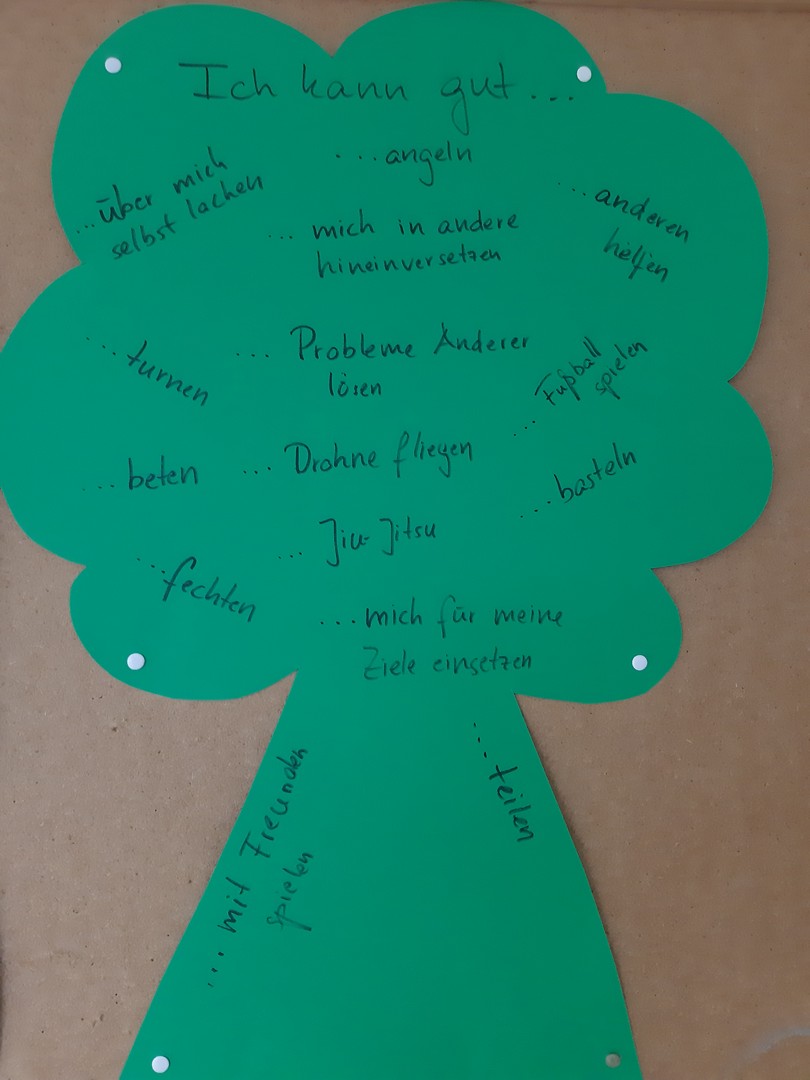 Ich kann gut...
...angeln
...über mich
selbst lachen
...anderen
helfen
...mich in andere
hineinversetzen
...turnen
...Probleme Anderer
lösen
...Fußball
spielen
...beten
...Drohne fliegen
...basteln
...Jiu-Jitsu
...fechten
...mich für meine
Ziele einsetzen
...mit Freunden
spielen
...teilen